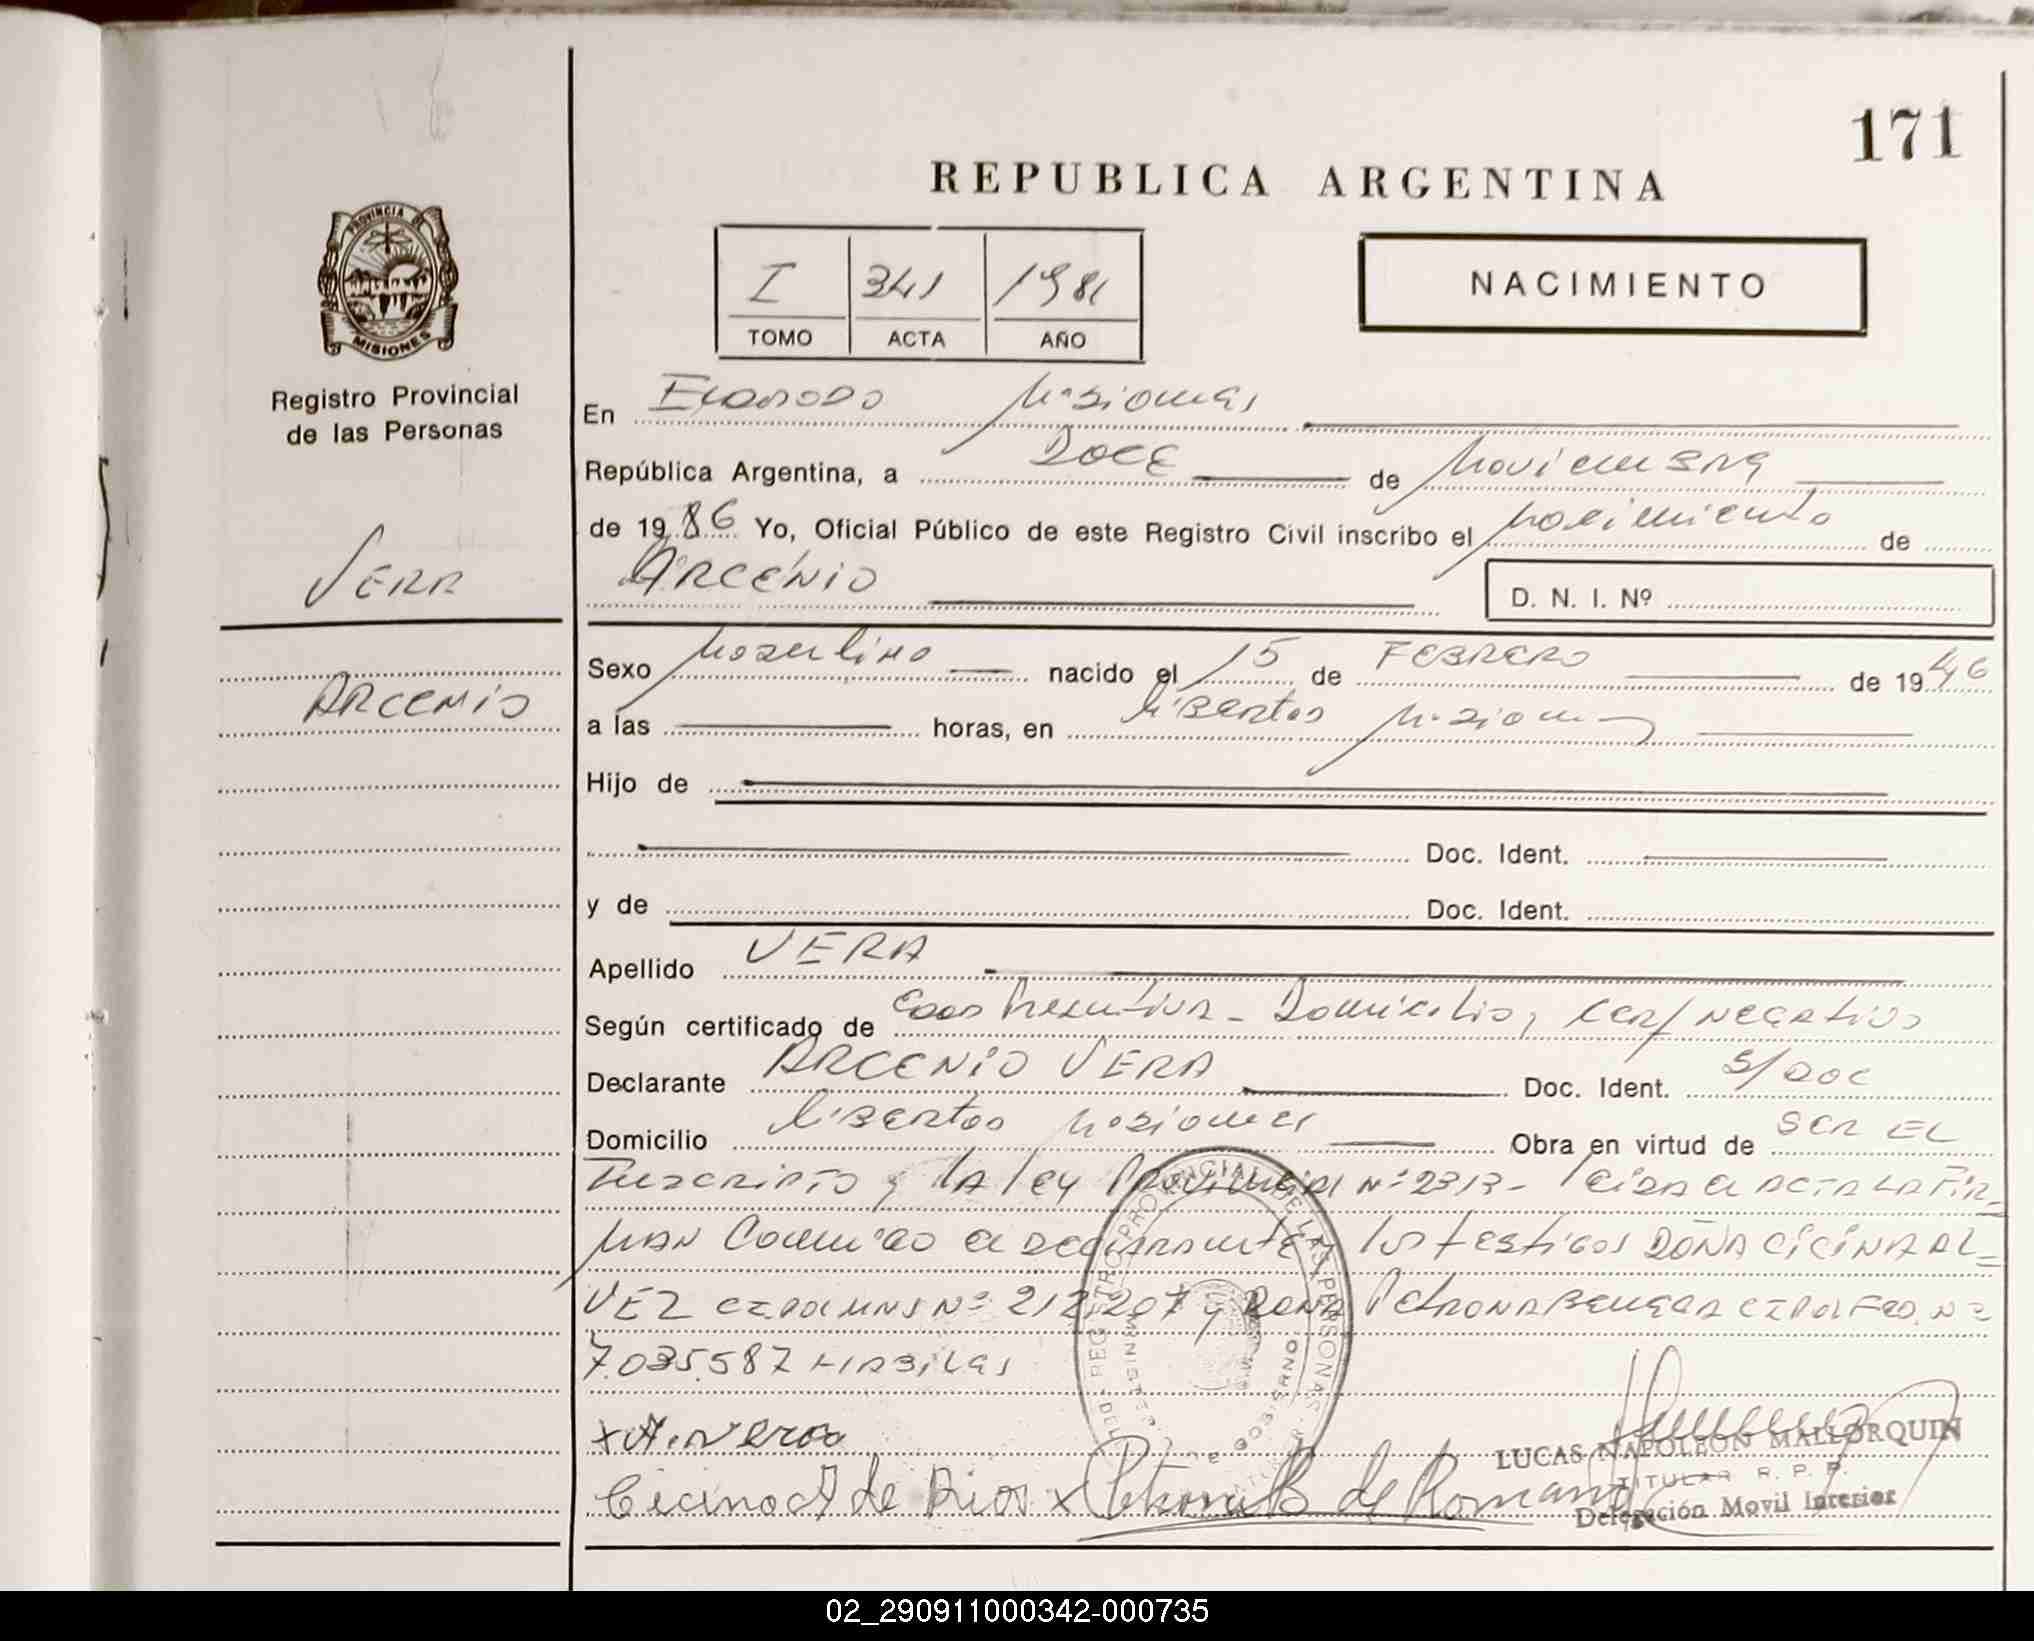 171
REPUBLICA ARGENTINA
I 341
TOMO ACTA AÑO
NACIMIENTO
PROVINCIA DE
MISIONES
Registro Provincial
de las Personas
En Eldorado Misiones
República Argentina, a DOCE de Noviembre
de 1986 Yo, Oficial Público de este Registro Civil inscribo el nacimiento de
ARCENIO
D. N. I. Nº
VERA
ARCENIO
Sexo Masculino nacido el 15 de FEBRERO de 1946
a las horas, en Libertad Misiones
Hijo de
Doc. Ident.
y de Doc. Ident.
Apellido VERA
Según certificado de Edad Presuntiva - Domicilio, Cer/ negativo
Declarante ARCENIO VERA Doc. Ident. S/DOC
Domicilio Libertad Misiones Obra en virtud de SER EL
Inscripto y la ley Provincial Nº 2313- leida el ACTA LA FIR_
MAN Conmigo el declarante y los testigos DOÑA CICINA AL_
VEZ Nº 212.207 y DOÑA Petrona Nº
7.035.587 HABILES
x A. Vera
Cicina A de Rios x Petrona B de Romani
REGISTRO PROVINCIAL DE LAS PERSONAS
MINISTERIO DE GOBIERNO
LUCAS NAPOLEON MALLORQUIN
TITULAR R. P. P.
Delegación Movil Interior
02_290911000342-000735